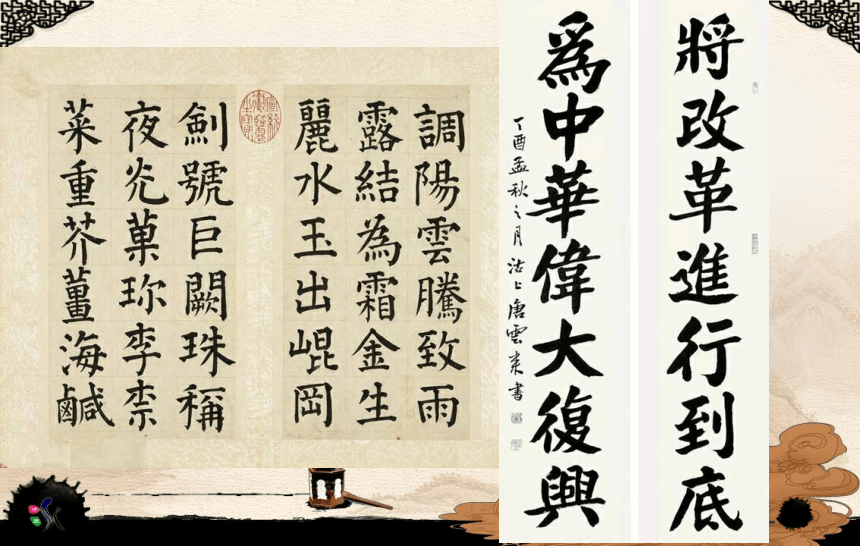 將改革進行到底
爲中華偉大復興
丁酉孟秋之月沽上唐雲來書
調陽雲騰致雨
露結為霜金生
麗水玉出崐岡
劍號巨闕珠稱
夜光菓珎李柰
菜重芥薑海鹹